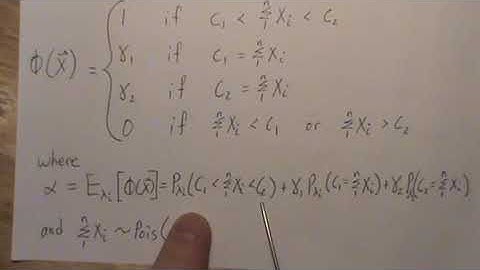 1 if C₁ < Σ₁ⁿ Xᵢ < C₂
γ₁ if C₁ = Σ₁ⁿ Xᵢ
ϕ(X⃗) =
γ₂ if C₂ = Σ₁ⁿ Xᵢ
0 if Σ₁ⁿ Xᵢ < C₁ or Σ₁ⁿ Xᵢ > C₂
where
α = E_λᵢ[ϕ(X⃗)] = P_λᵢ(C₁ < Σ₁ⁿ Xᵢ < C₂) + γ₁ P_λᵢ(C₁ = Σ₁ⁿ Xᵢ) + γ₂ P_λᵢ(C₂ = Σ₁ⁿ Xᵢ)
and Σ₁ⁿ Xᵢ ~ Pois(